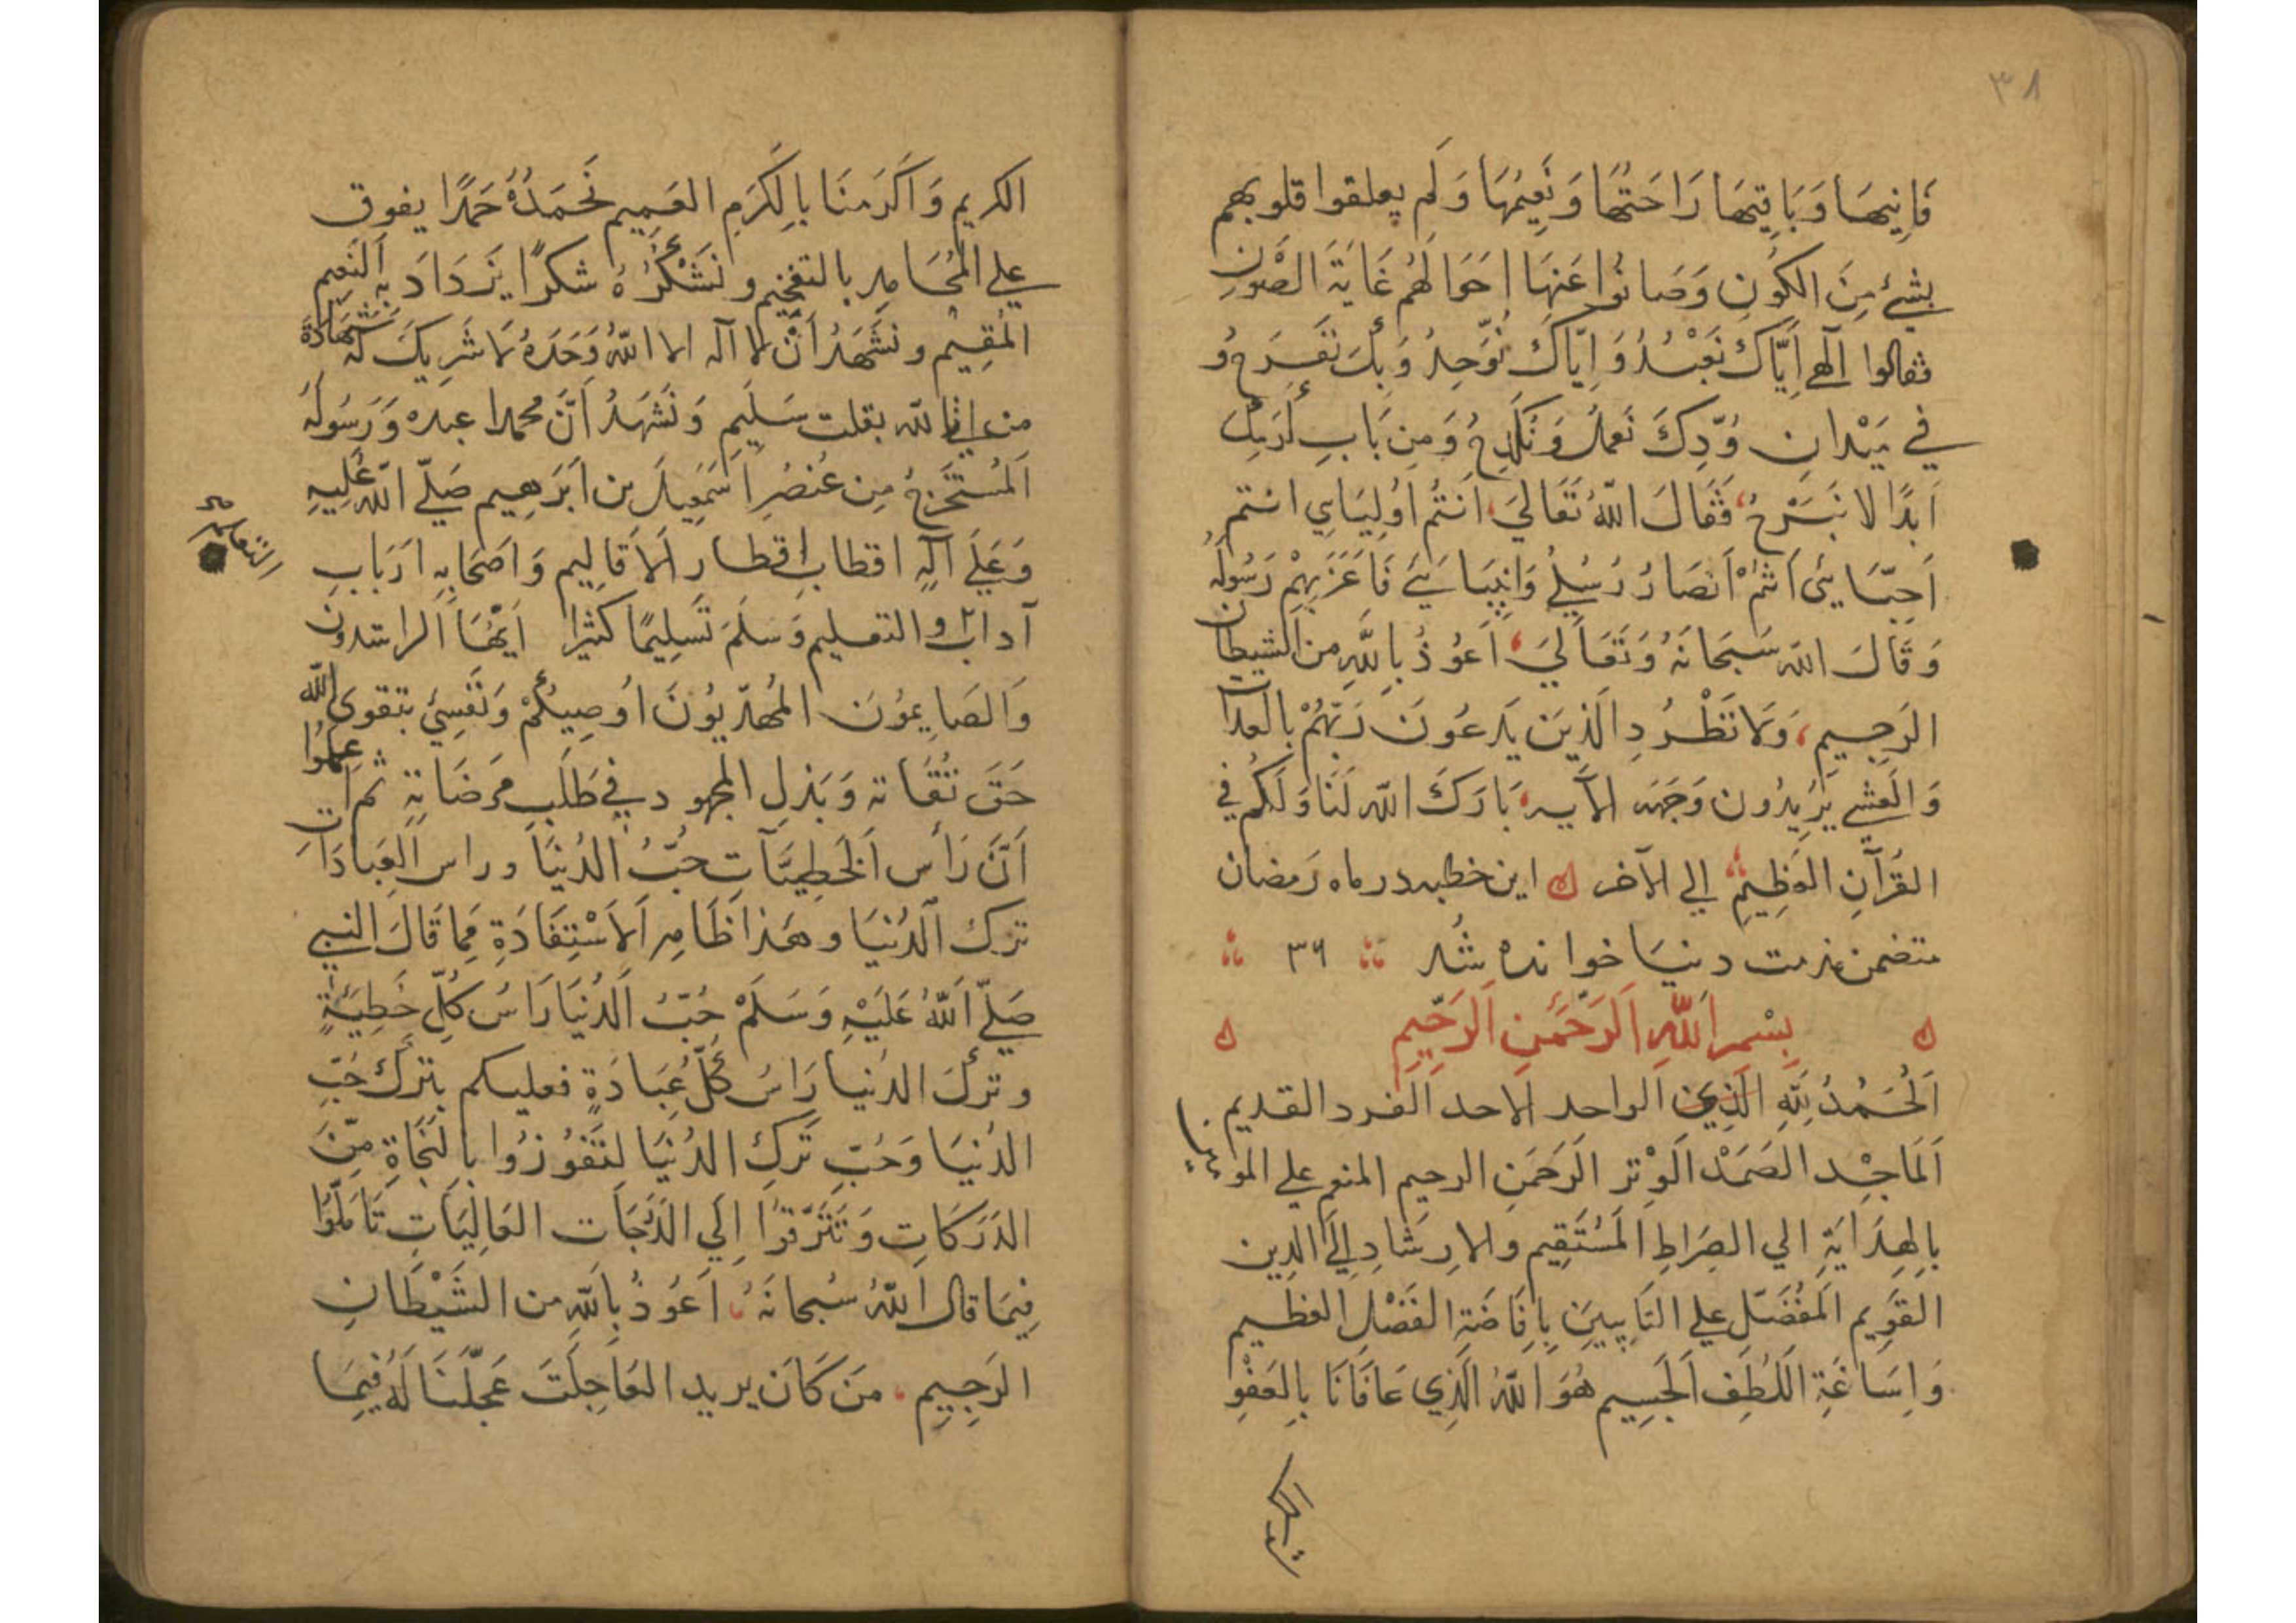 ٣٨
فَانِيهَا وَبَاقِيهَا رَاحَتُهَا وَنَعِيمُهَا وَلَم يعلقوا قلوبهم
بشئ مِنَ الكَونِ وَصَانُوا عَنهَا احَوالَهُم غَايَةَ الصَّونِ
فقالوا الَهي اِيَّاكَ نَعبُدُ وَاِيّاكَ نُوَحِدُ وَبِكَ نَفرَحُ و
في مَيْدانِ وُدِّكَ نَعمَلُ وَنَكدَحُ وَمِن بَابِ
اَبدًا لا نَبْرَحُ فَقَالَ اللهُ تَعَالَي اَنتُم اَولِيَايِي انتم
اَحِبّايئ اَنتُمْ اَنصَارُ رُسُلِي وَانبِيَائي فَاعَزَّبِهِمْ رَسُولَهُ
وَقَالَ الله سَبحَانَهُ وَتَعَالَيَ اَعوُذُ بِاللهِ مِن الشيطان
الرَجِيمِ وَلَا تَطْرُدِ الَّذِينَ يَدعُونَ رَبَّهُمْ بِالغداة
وَالَعشِي يُرِيدُونَ وَجهَه الآيه بَارَكَ الله لَنَا وَلَكُم في
القُرآنِ العَظِيمِ الي الآخر اين خطبه در ماه رَمضان
متضمن مذمت دنيَا خوانده شُد ٣٦
بِسْمِ اللهِ الَرَحمَنِ الَرَحِيمِ
اَلحَمدُ لِلهِ الَذِي الواحد الاحد الفرد القديم
اَلمَاجِد الصَمَد الَوِتر الَرَحمَنِ الرحيم المنعم علي
بِالهِدَايَةِ الي الصِرَاطِ المُستَقِيم والارشَادِ اِلَي الدِين
القَوِيم المُفَضِّل علي التَايِبِينَ بِاِفَاضَةِ الفَضْلِ العظيم
وَاِسَاغَةِ اللُطفِ الجَسِيم هُوَ اللهُ الَذِي عَافَانَا بِالعَفْوِ
الكريم
الكريم وَاَكرَمَنَا بِالكَرَمِ العَمِيم نَحمَدُهُ حَمدًا يفوق
علي المَحَامِدِ بالتفخيم ونَشْكُرُهُ شكرًا يَزدَادُ بِهِ النَعِيم
المُقِيم ونَشهَدُ اَنْ لا اله الا اللهُ وَحَدَهُ لَا شَرِيكَ لَه شَهَادَةَ
من الله بقلب سَليم وَنَشهَدُ اَنَّ محمدا عبده وَرَسُولُهُ
اَلمُستَخرَجُ مِن عُنصُرِ اسَمعِيلَ بن اَبرَهِيم صَلّي اللهُ عَلَيهِ
وَعَلَي آلِهِ اقطابِ اقطارِ الَاقَالِيم وَاصحَابِهِ اَربَابِ
آداب والتعليم وَسَلَمَ تَسلِيمًا كثيرا اَيُّهَا الراشدون
وَالصَايِمُونَ المُهذّبُونَ اُوصِيكُمْ وَنَفسِي بتقوى الله
حَقَ تُقَاته وَبَذلِ المجهود في طَلَبِ مَرضَاتِهِ ثم اعلموا
اَنَّ رَأسَ الخَطِيَّاتِ حُبُّ الدُنيَا وراس العِبادَاتِ
ترك الدُنيَا وهَذا ظَاهِر الَاسْتِفَادَةِ مِمَا قَالَ النبي
صَلّي اللهُ عَلَيْهِ وَسَلَمْ حُبّ الدُنيَا رَاسُ كُلِّ خَطِيئَةٍ
وتركَ الدنيا رَاسُ كُلّ عِبَادَةٍ فعليكم بتَرك حُبّ
الدُنيَا وَحُبّ تَركِ الدُنيَا لتَفُوزُوا بالنَجَاةِ مِنَ
الدَرَكَاتِ وَتَتَرقَوا اِلَي الدَرَجَاتِ العَالِيَاتِ تَامَلُوا
فِيمَا قال اللهُ سُبحانَهُ اَعُوذُ بِاللهِ من الشَيْطَانِ
الرَجِيِمِ مَن كَانَ يريد العَاجِلَتَ عَجلّنَا لَهُ فِيمَا